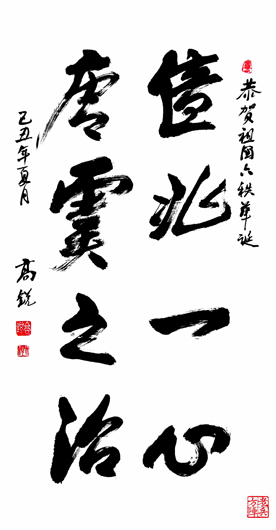 恭贺祖国六秩华诞
億兆一心
唐虞之治
己丑年夏月
高锐